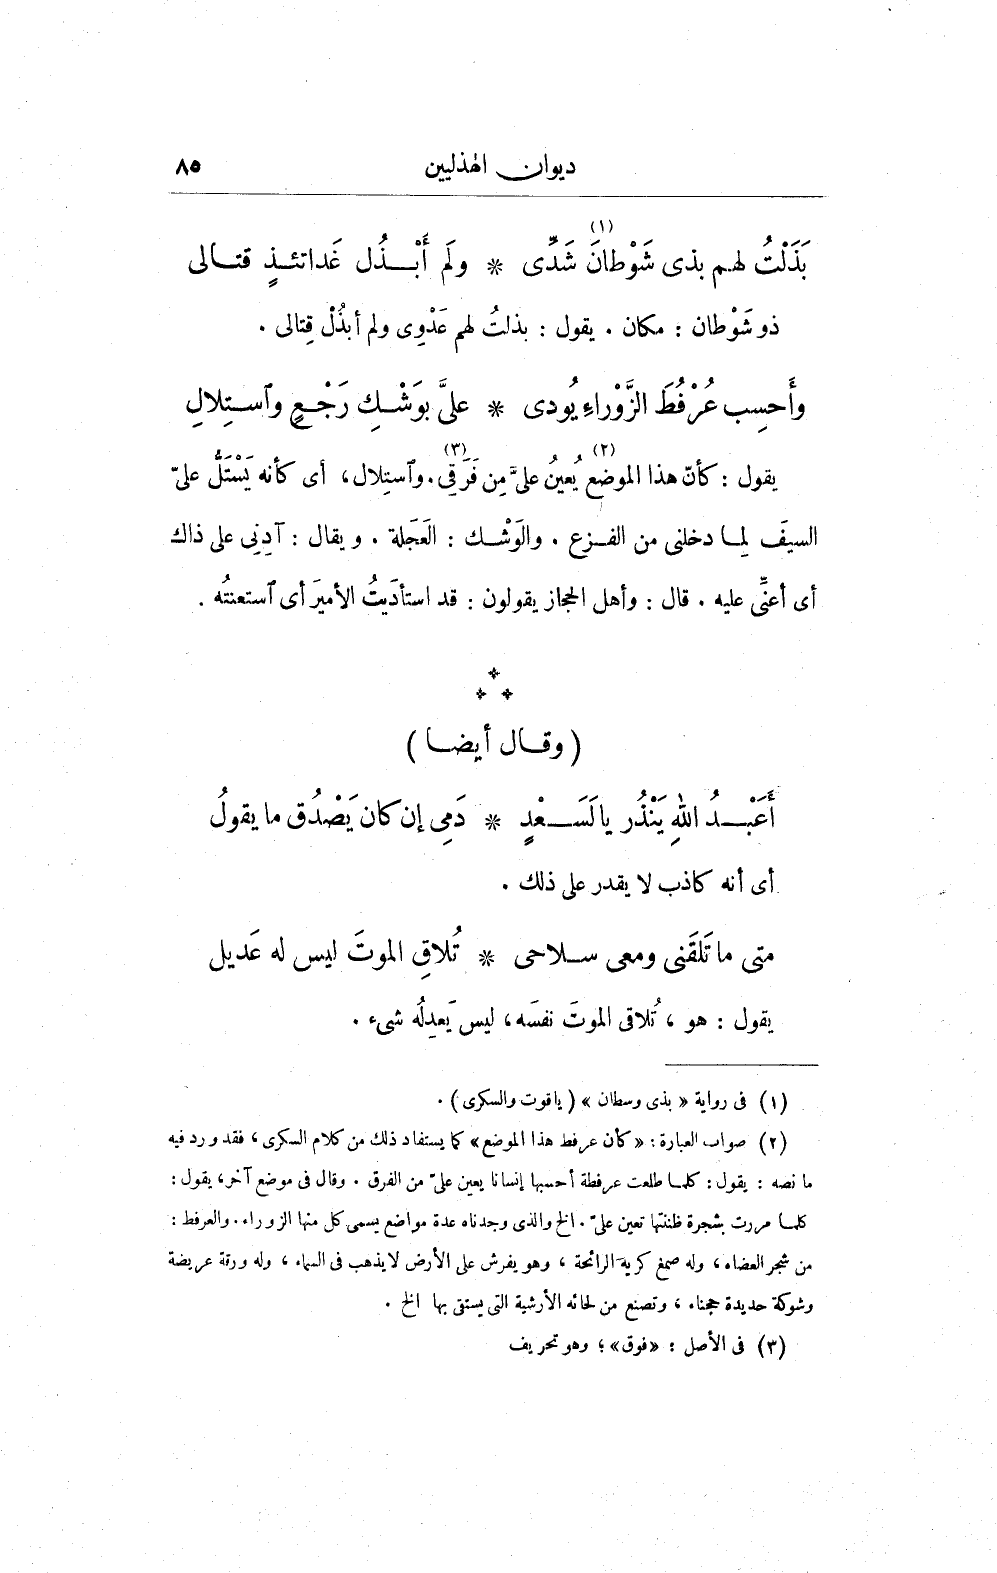 ديوان الهذليين ٨٥
بَذَلْتُ لهم بذى شَوْطانَ(١) شَدِّى * ولَم أَبْذُل غَداتئذٍ قتالى
ذو شَوْطان : مكان . يقول : بذلتُ لهم عَدْوِى ولم أبذُلْ قِتالى .
وأَحسِب عُرْفُطَ الزَّوْراءِ يُودى * علىَّ بوَشْكِ رَجْعٍ وٱستِلالِ
يقول : كأنّ هذا الموضع(٢) يُعينُ علىَّ مِن فَرَقِى(٣) . وٱستِلال، أى كأنه يَسْتَلُّ علىّ
السيفَ لِما دخلنى من الفزع . والوَشْك : العَجَلة . ويقال : آدِنِى على ذاك
أى أعنِّى عليه . قال : وأهل الحجاز يقولون : قد استأدَيتُ الأميرَ أى ٱستعنتُه .
(وقال أيضا)
أَعَبْدُ اللهِ يَنْذُر يالَسَعْدٍ * دَمِى إن كان يَصْدُق ما يقولُ
أى أنه كاذب لا يقدر على ذلك .
متى ما تَلقَنى ومعى سلاحى * تُلاقِ الموتَ ليس له عَديل
يقول : هو ، تُلاقى الموتَ نفسَه، ليس يَعدِلُه شىء .
(١) فى رواية « بذى وسطان » (ياقوت والسكرى) .
(٢) صواب العبارة : «كأن عرفط هذا الموضع» كما يستفاد ذلك من كلام السكرى، فقد ورد فيه
ما نصه : يقول : كلما طلعت عرفطة أحسبها إنسانا يعين علىّ من الفرق . وقال فى موضع آخر، يقول :
كلما مررت بشجرة ظننتها تعين علىّ . الخ والذى وجدناه عدة مواضع يسمى كل منها الزوراء . والعرفط :
من شجر العضاه، وله صمغ كريه الرائحة ، وهو يفرش على الأرض لا يذهب فى السماء ، وله ورقة عريضة
وشوكة حديدة حجناء ، وتصنع من لحائه الأرشية التى يستقى بها الخ .
(٣) فى الأصل : «فوق» ؛ وهو تحريف